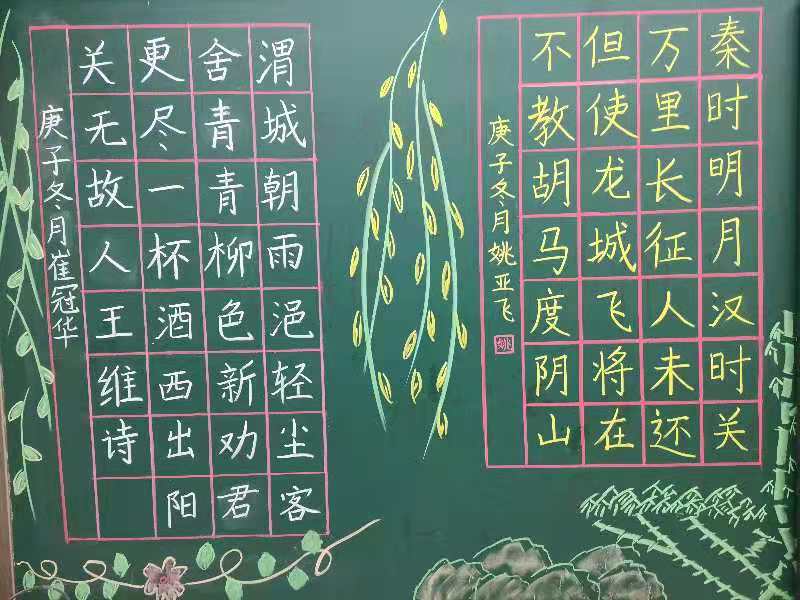 秦时明月汉时关
万里长征人未还
但使龙城飞将在
不教胡马度阴山
庚子冬月姚亚飞
姚
渭城朝雨浥轻尘客
舍青青柳色新劝君
更尽一杯酒西出阳
关无故人王维诗
庚子冬月崔冠华